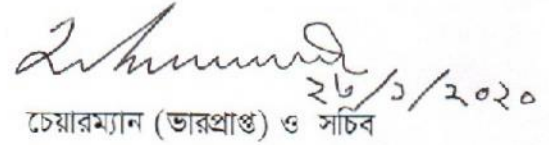 ২৮/১/২০২০
চেয়ারম্যান (ভারপ্রাপ্ত) ও সচিব